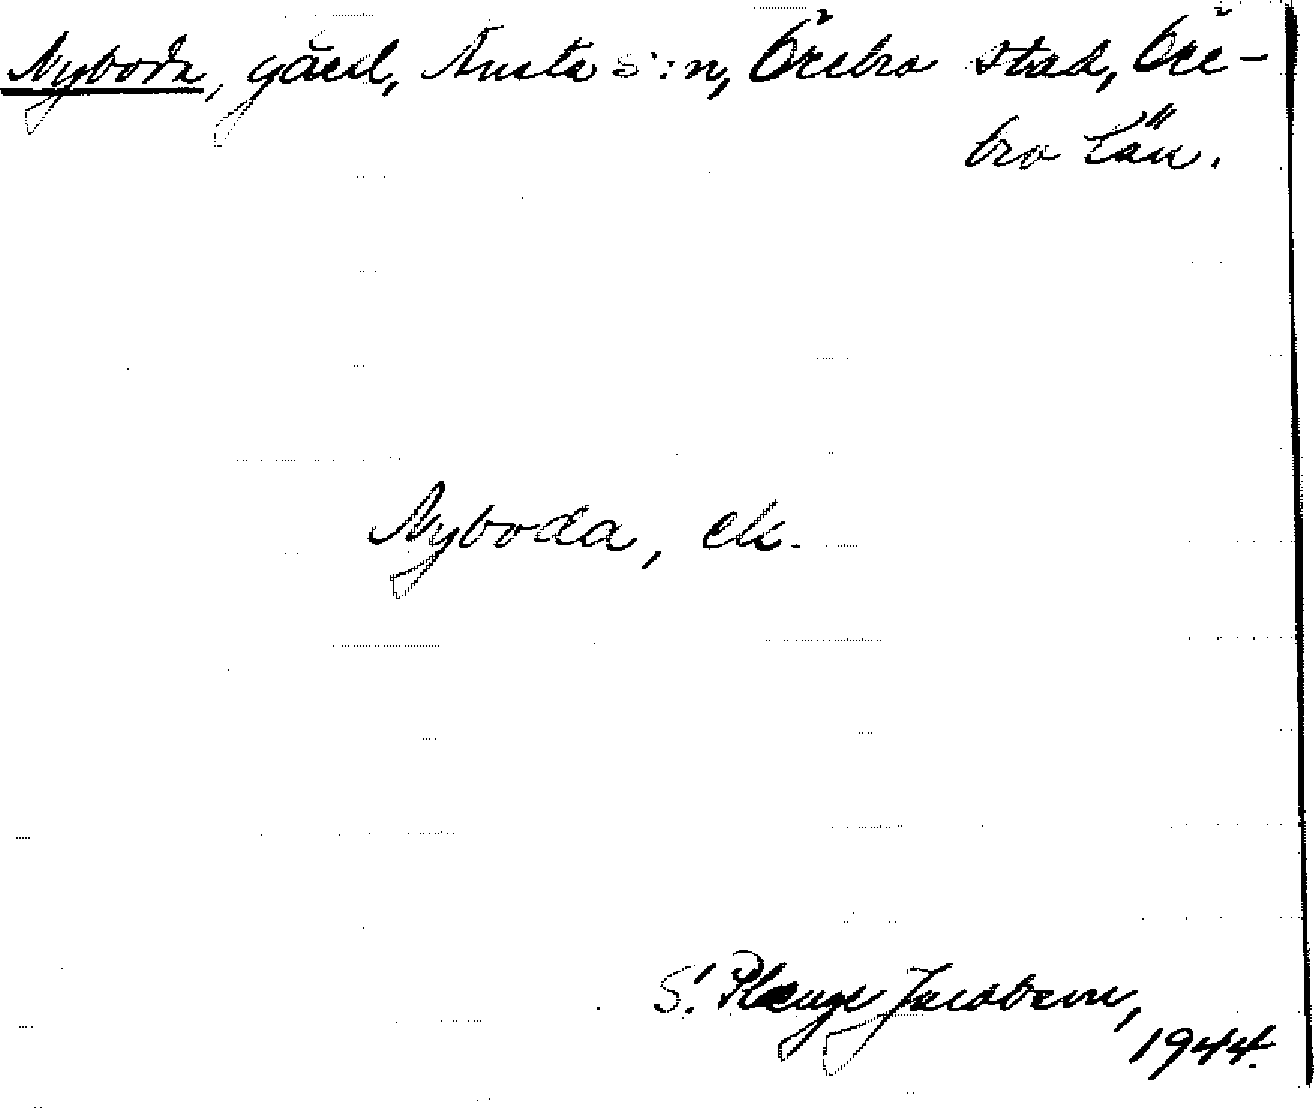 Nyboda, gård, Ånsta s:n, Örebro stad, Öre-
bro län.
Nyboda, ek.
S. Plenge Jacobson,
1944.